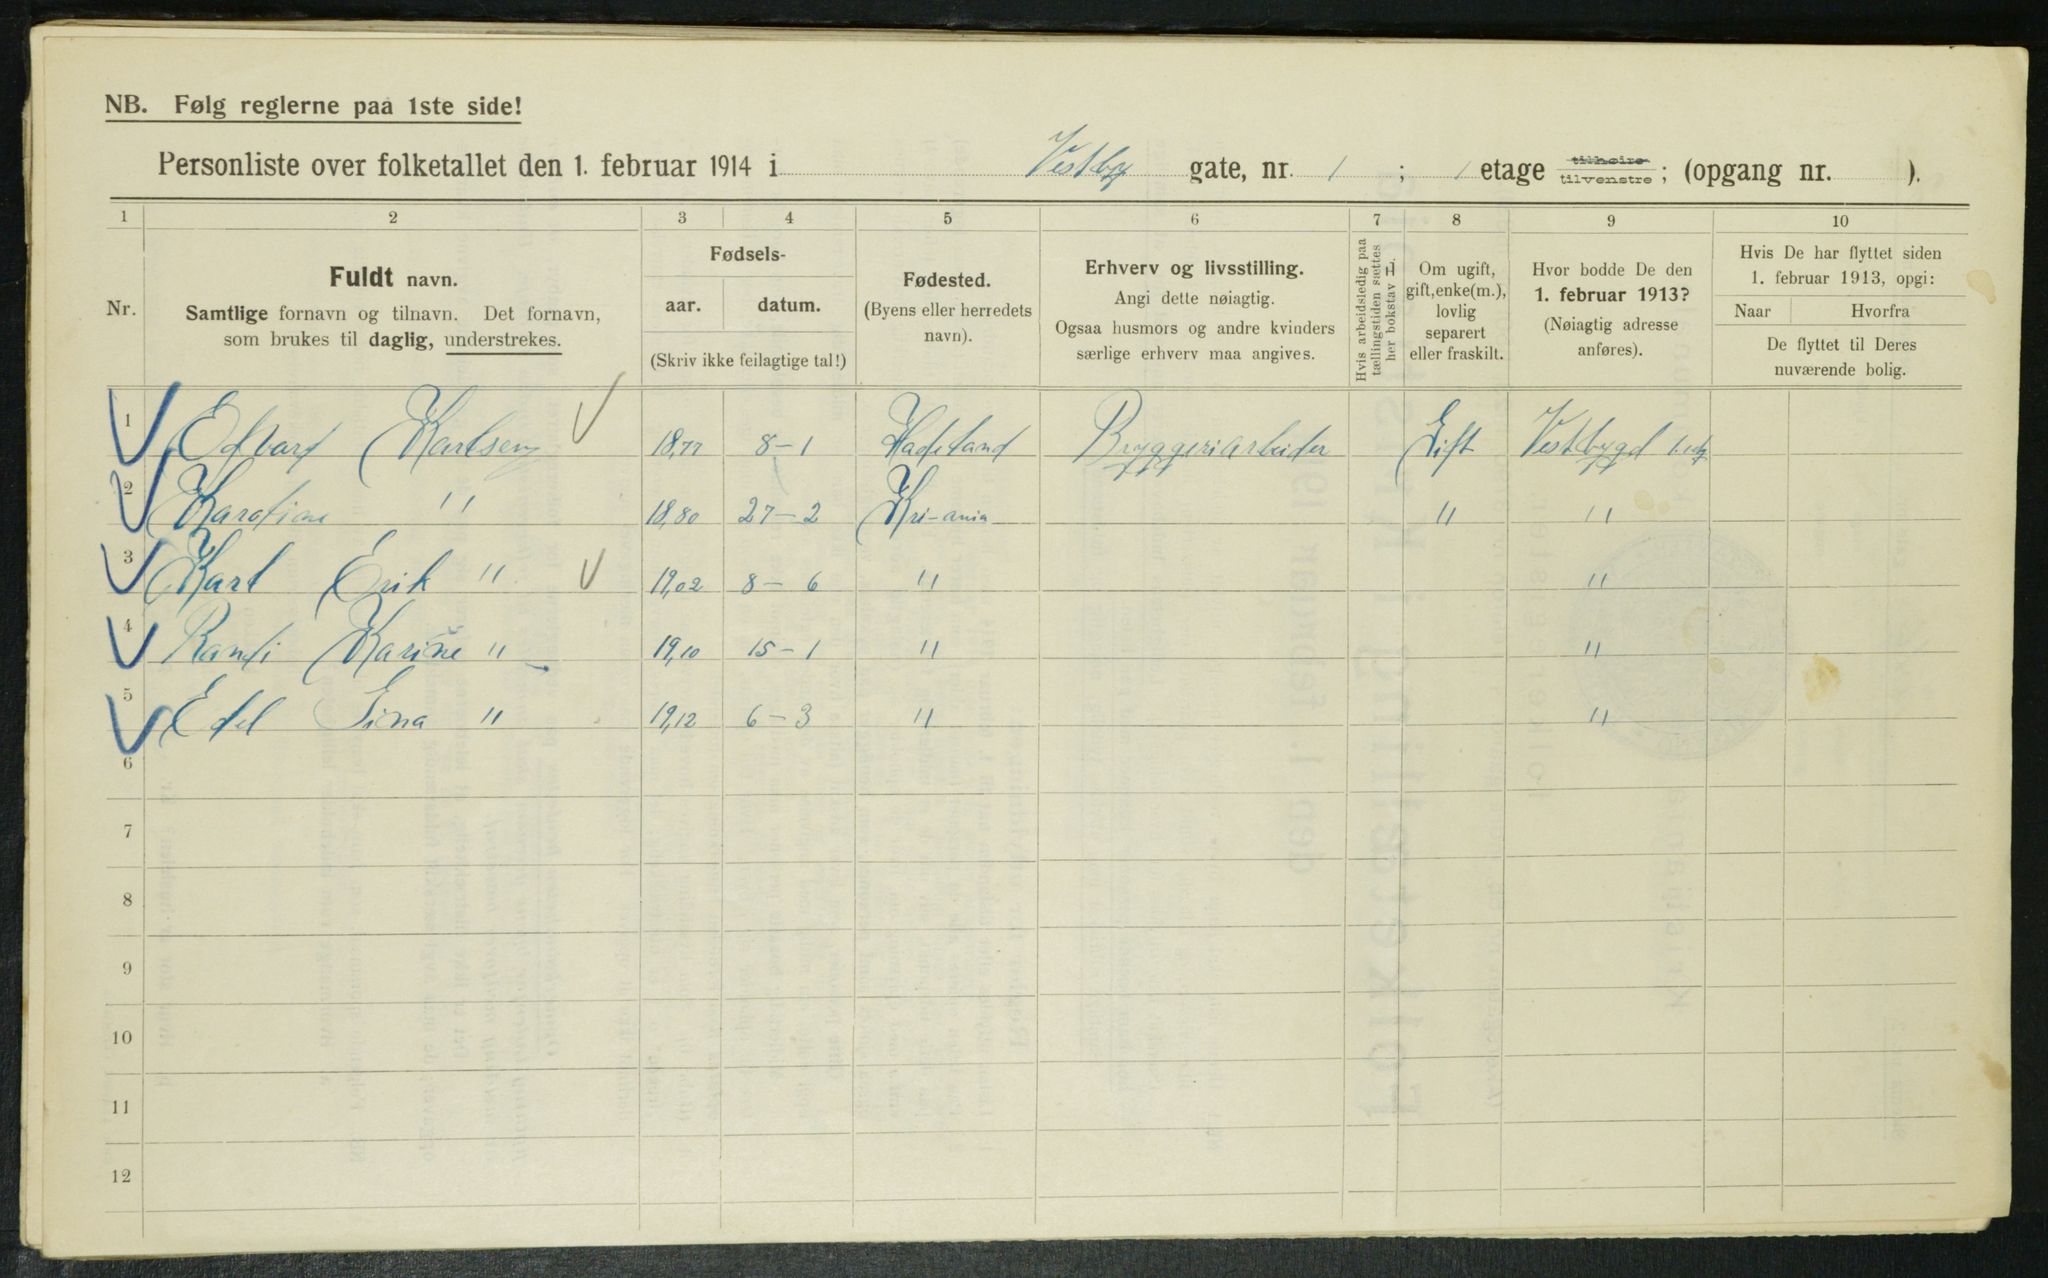 NB. Følg reglerne paa 1ste side!
Personliste over folketallet den 1. februar 1914 i Vestby gate, nr. 1 ; 1 etage tilhøire tilvenstre ; (opgang nr. ).
1 2 3 4 5 6 7 8 9 10
Nr.
Fuldt navn.
Samtlige fornavn og tilnavn. Det fornavn,
som brukes til daglig, understrekes.
Fødsels-
aar. datum.
(Skriv ikke feilagtige tal!)
Fødested.
(Byens eller herredets
navn).
Erhverv og livsstilling.
Angi dette nøiagtig.
Ogsaa husmors og andre kvinders
særlige erhverv maa angives.
Hvis arbeidsledig paa
tællingstiden sættes
her bokstav L.
Om ugift,
gift, enke(m.),
lovlig
separert
eller fraskilt.
Hvor bodde De den
1. februar 1913?
(Nøiagtig adresse
anføres).
Hvis De har flyttet siden
1. februar 1913, opgi:
Naar Hvorfra
De flyttet til Deres
nuværende bolig.
1 Edvard Karlsen 18,77 8–1 Hadeland Bryggeriarbeider Gift Vestbygd
2 Karoline " 18,80 27–2 Kri-ania " "
3 Karl Erik " 19,02 8–6 " "
4 Randi Karine " 19,10 15–1 " "
5 Edel Sina " 19,12 6–3 " "
6
7
8
9
10
11
12